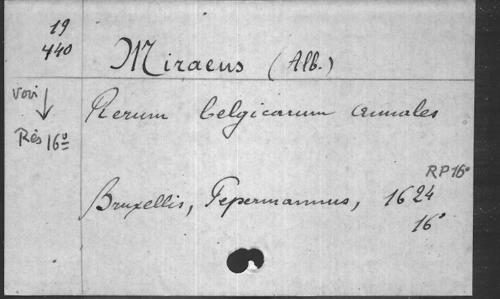 19
440
Miraeus (Alb.)
Voir
Rés 16º
Rerum belgicarum annales
RP 16º
Bruxellis, Pepermannus, 1624
16º